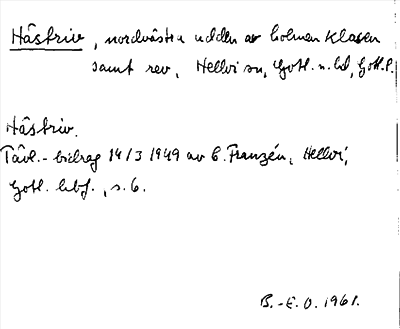 Hästriv, nordvästra udden av holmen Klasen
samt rev, Hellvi sn, Gotl. n. hd, Gotl. l.
Hästriv.
Tävl.-bidrag 14/3 1949 av E. Franzén, Hellvi,
Gotl. hbf., s. 6.
B.-E. O. 1961.